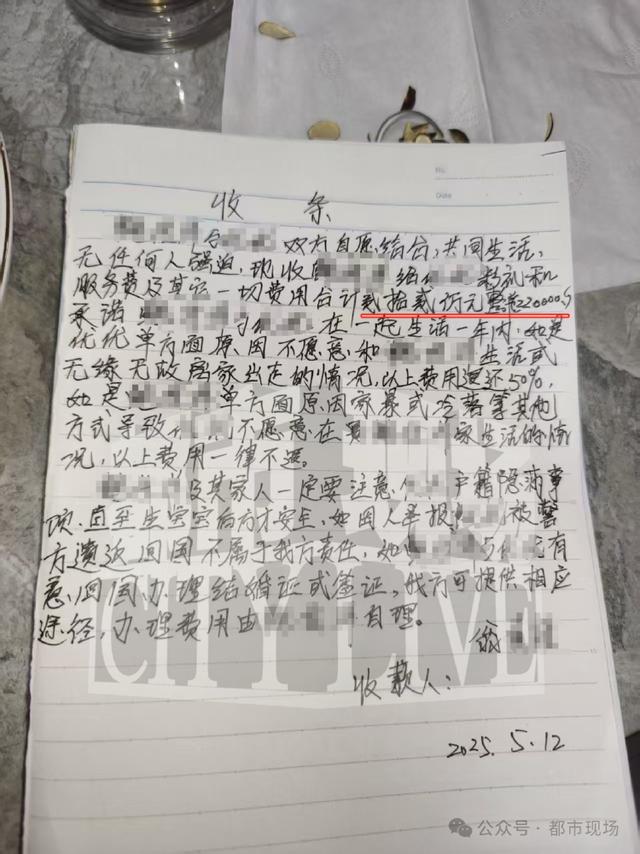 No.
Date
收 条
双方自愿结合,共同生活,
无任何人强迫,现收 给 彩礼和
服务费及其它一切费用合计贰拾贰万元整220000
承诺 在一起生活一年内,如是
优优单方面原因不愿意和 生活或
无缘无故离家出走的情况,以上费用退还50%,
如是 单方面原因家暴或冷落等其他
方式导致 不愿意在 家生活的情
况,以上费用一律不退。
及其家人一定要注意 户籍隐瞒事
项,直至生宝宝后方才安全,如因人举报 被警
方遣返回国不属于我方责任,如 与 有
意回国办理结婚证或签证,我方可提供相应
途径,办理费用由 自理。
收款人:
2025.5.12
CITY LIVE
公众号·都市现场